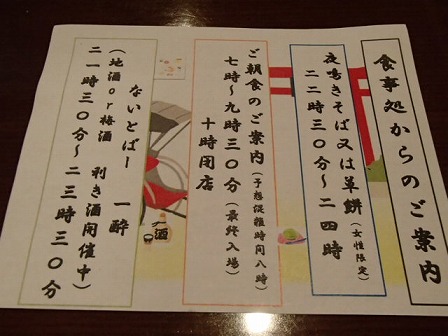 食事処からのご案内
夜鳴きそば又は草餅(女性限定)
二二時三〇分～二四時
ご朝食のご案内(予想混雑時間八時)
七時～九時三〇分(最終入場)
十時閉店
ないとばー 一酔
(地酒or梅酒 利き酒開催中)
二一時三〇分～二三時三〇分
酒